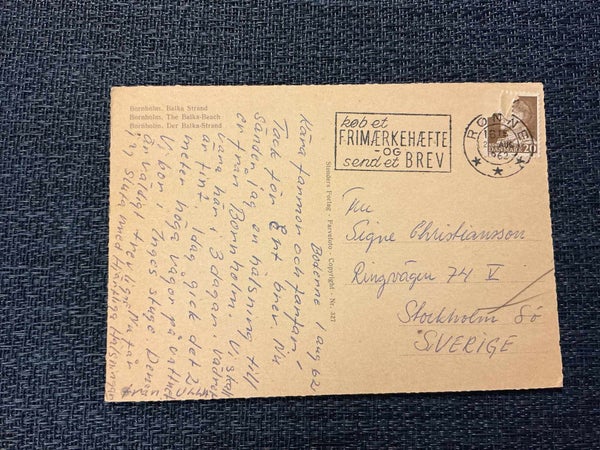 Bornholm. Balka Strand
Bornholm. The Balka-Beach
Bornholm. Der Balka-Strand
Boderne 1 aug 62
Kära farmor och farfar!
Tack för Ert brev. Nu
sänder jag en hälsning till
er från Bornholm. Vi skall
vara här i 3 dagar. Vädret
är fint. Idag gick det 2
meter höga vågor på vattnet
Vi bor i Inges stuga. Denna
är väldigt trevlig. Nu får
jag sluta med
Stenders Forlag - Farvefoto - Copyright - Nr. 327
køb et
FRIMÆRKEHÆFTE
-OG
send et BREV
RØNNE
AUG
1962
Fru
Signe Christiansson
Ringvägen 74 V
Stockholm Sö
SVERIGE